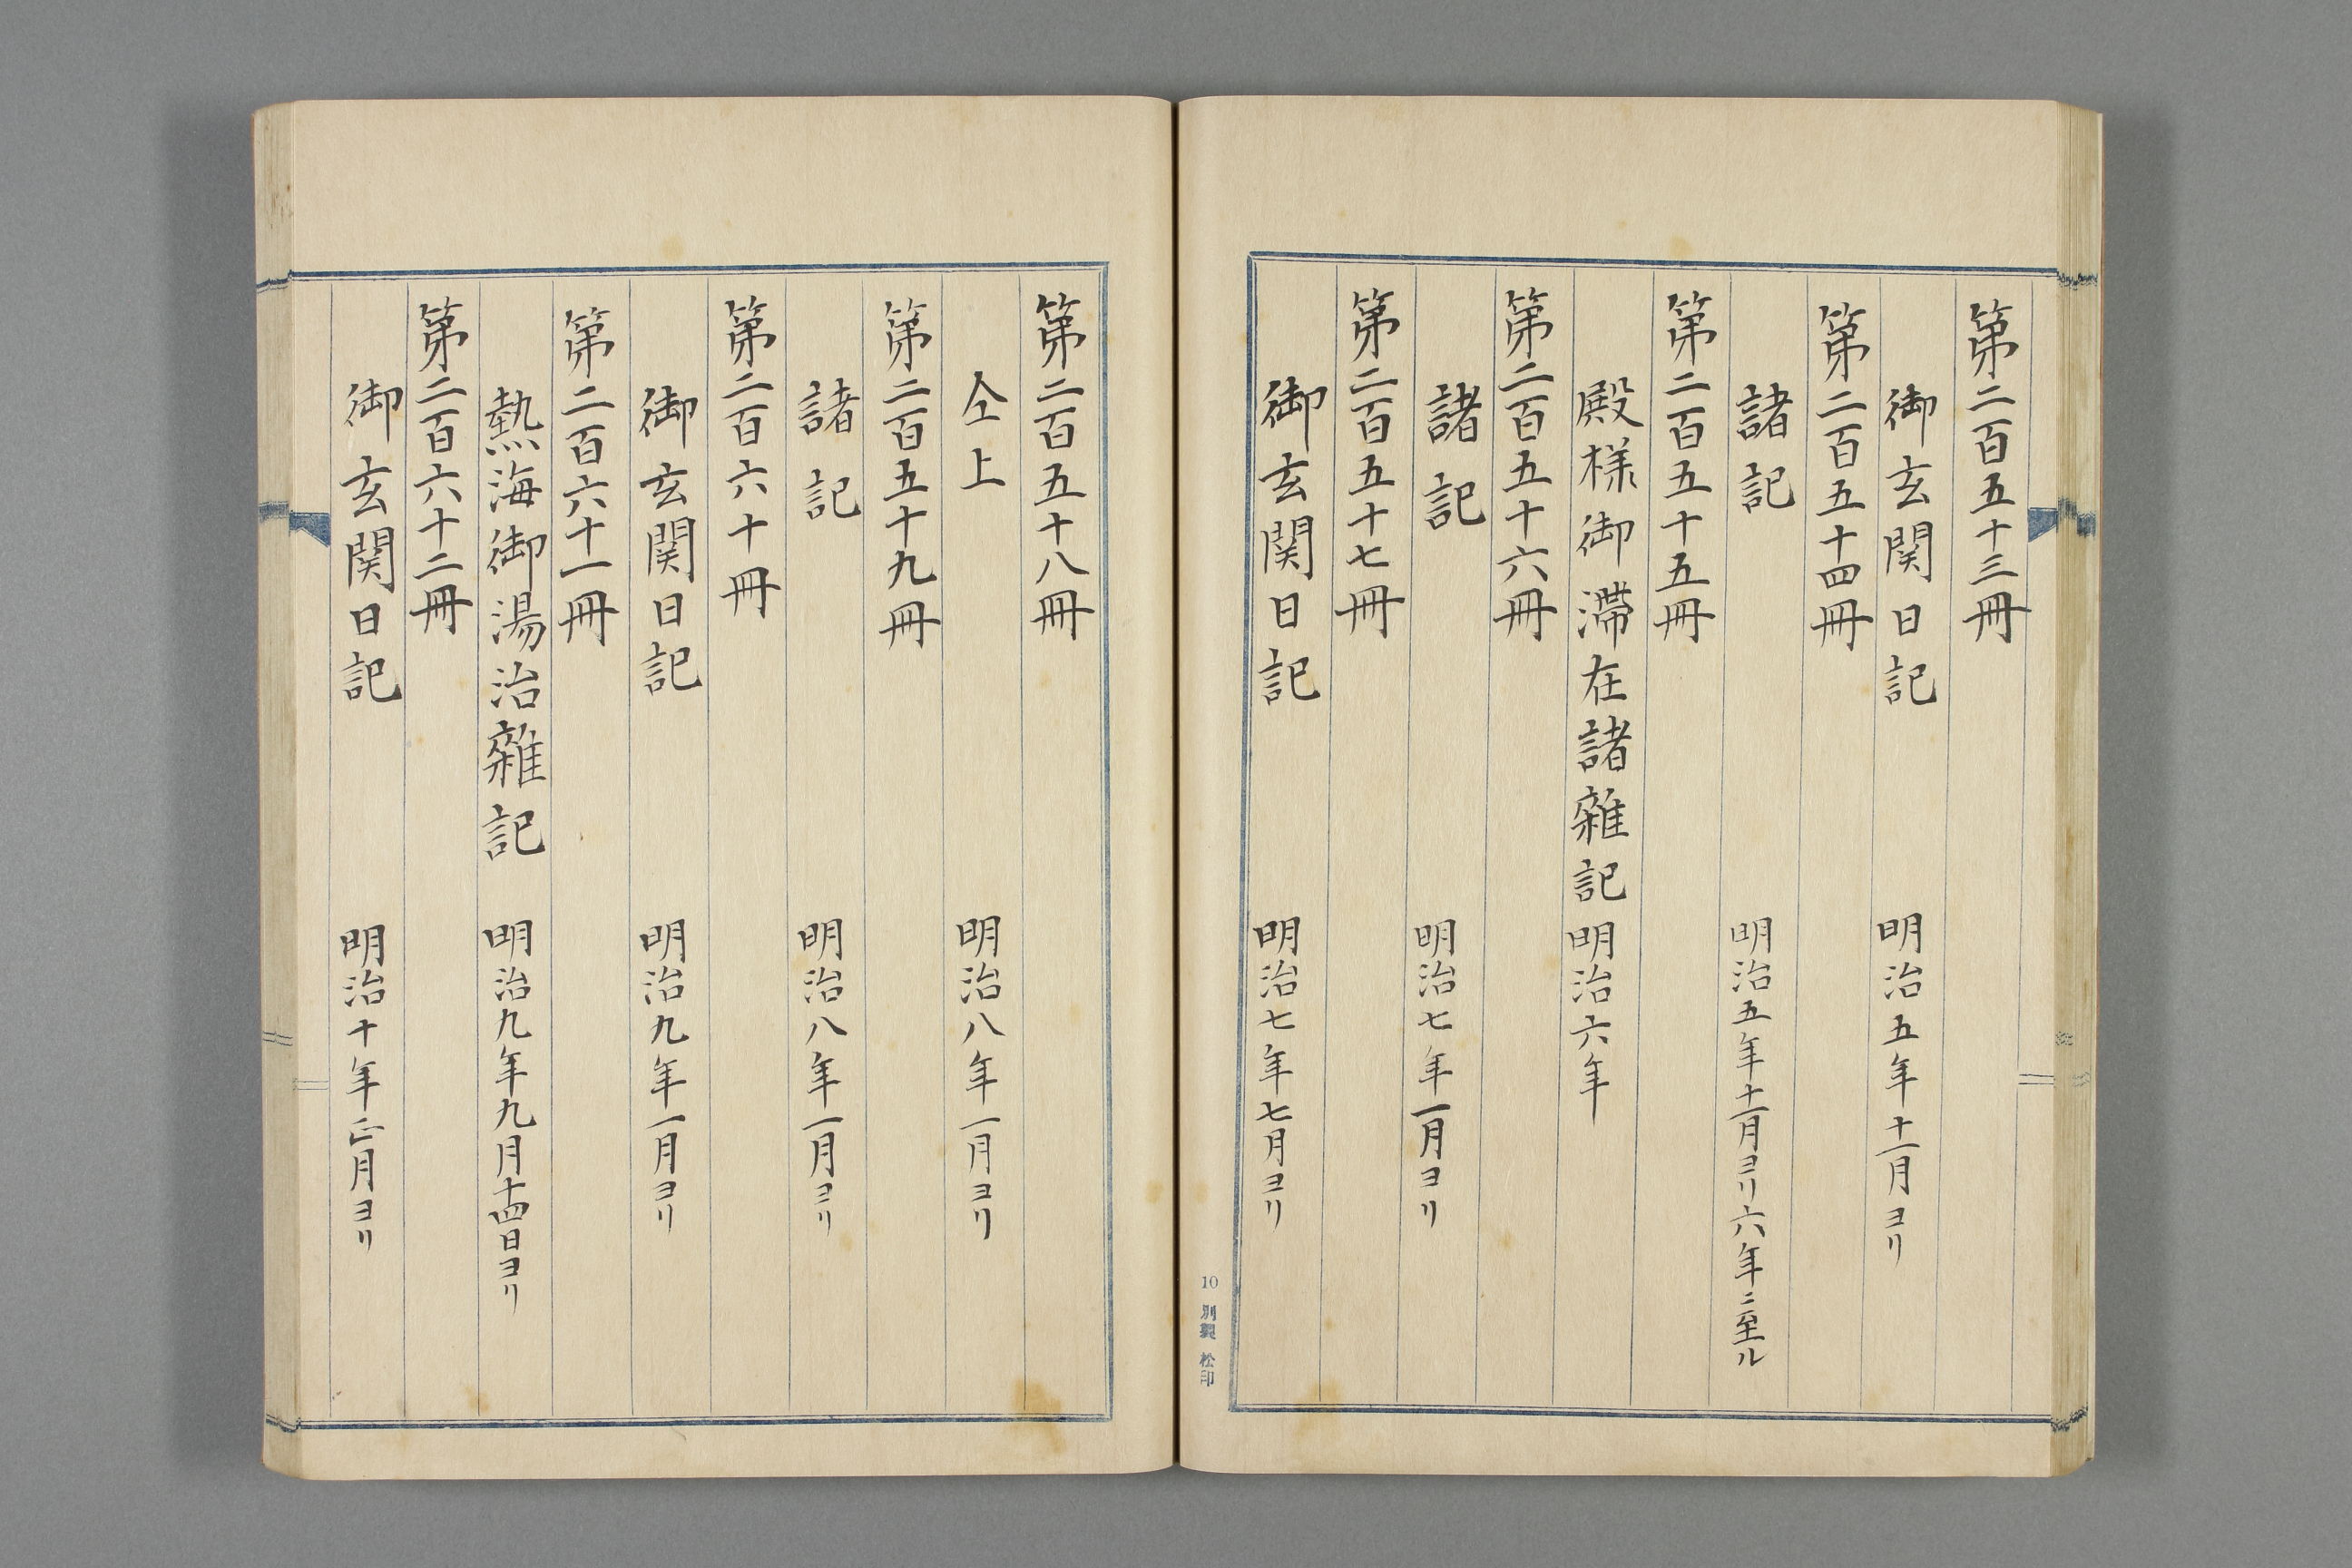 第二百五十三冊
御玄関日記 明治五年十一月ヨリ
第二百五十四冊
諸記 明治五年十一月ヨリ六年ニ至ル
第二百五十五冊
殿様御滞在諸雜記 明治六年
第二百五十六冊
諸記 明治七年一月ヨリ
第二百五十七冊
御玄関日記 明治七年七月ヨリ
10 別製 松印
第二百五十八冊
仝上 明治八年一月ヨリ
第二百五十九冊
諸記 明治八年一月ヨリ
第二百六十冊
御玄関日記 明治九年一月ヨリ
第二百六十一冊
熱海御湯治雜記 明治九年九月十四日ヨリ
第二百六十二冊
御玄関日記 明治十年正月ヨリ